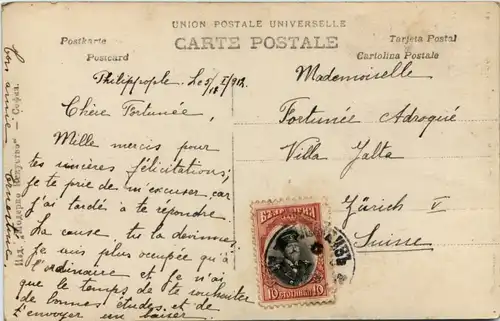 UNION POSTALE UNIVERSELLE
CARTE POSTALE
Postkarte
Postcard
Tarjeta Postal
Cartolina Postale
Philippople, Le 5/18/I/912.
Chère Fortunée,
Mille mercis pour
tes sincères félicitations;
je te prie de m'excuser car
j'ai tardé à te répondre.
La cause tu la devinnes.
Je suis plus occupée qu'à
l'ordinaire et je n'ai
que le temps de te souhaiter
de bonnes études et de
t'envoyer un baiser.
Ton amie
Mademoiselle
Fortunée Adroqué
Villa Yalta
Zürich V
Suisse
10
10
Изд. „Модерно Искуство" — София.